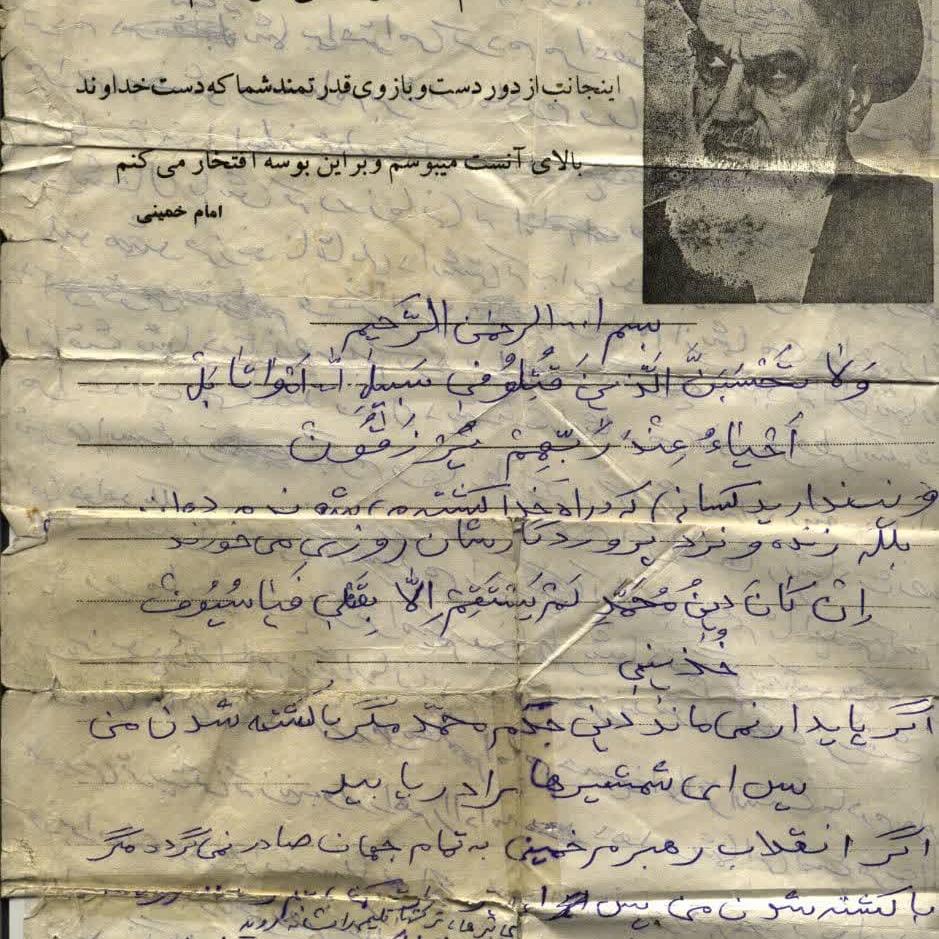 اینجانب از دور دست و بازوی قدرتمند شما که دست خداوند
بالای آنست میبوسم و بر این بوسه افتخار می کنم
امام خمینی
بسم ا... الرحمن الرَّحیم
وَلا تَحْسَبَنَّ الَّذینَ قُتِلُوُ فی سَبیلِ اللّه اَمْواتا بَلْ
اَحْیاءُ عِنْدَ رَبِّهِمْ یُرْزَقُونْ
و نپندارید کسانی که در راه خدا کشته می شوند مرده اند
بلکه زنده و نزد پروردگارشان روزی می خورند
اِنْ کانَ دینُ مُحَمَّدِ لَمْ یَسْتَقِمْ اِلّا بِقَتْلی فَیا سُیُوفْ
خُذینی
اگر پایدار نمی ماند دین جدم محمّد مگر با کشته شدن من
پس ای شمشیرها مرا دریابید
اگر انقلاب رهبرم خمینی به تمام جهان صادر نمی گردد مگر
با کشته شدن من پس